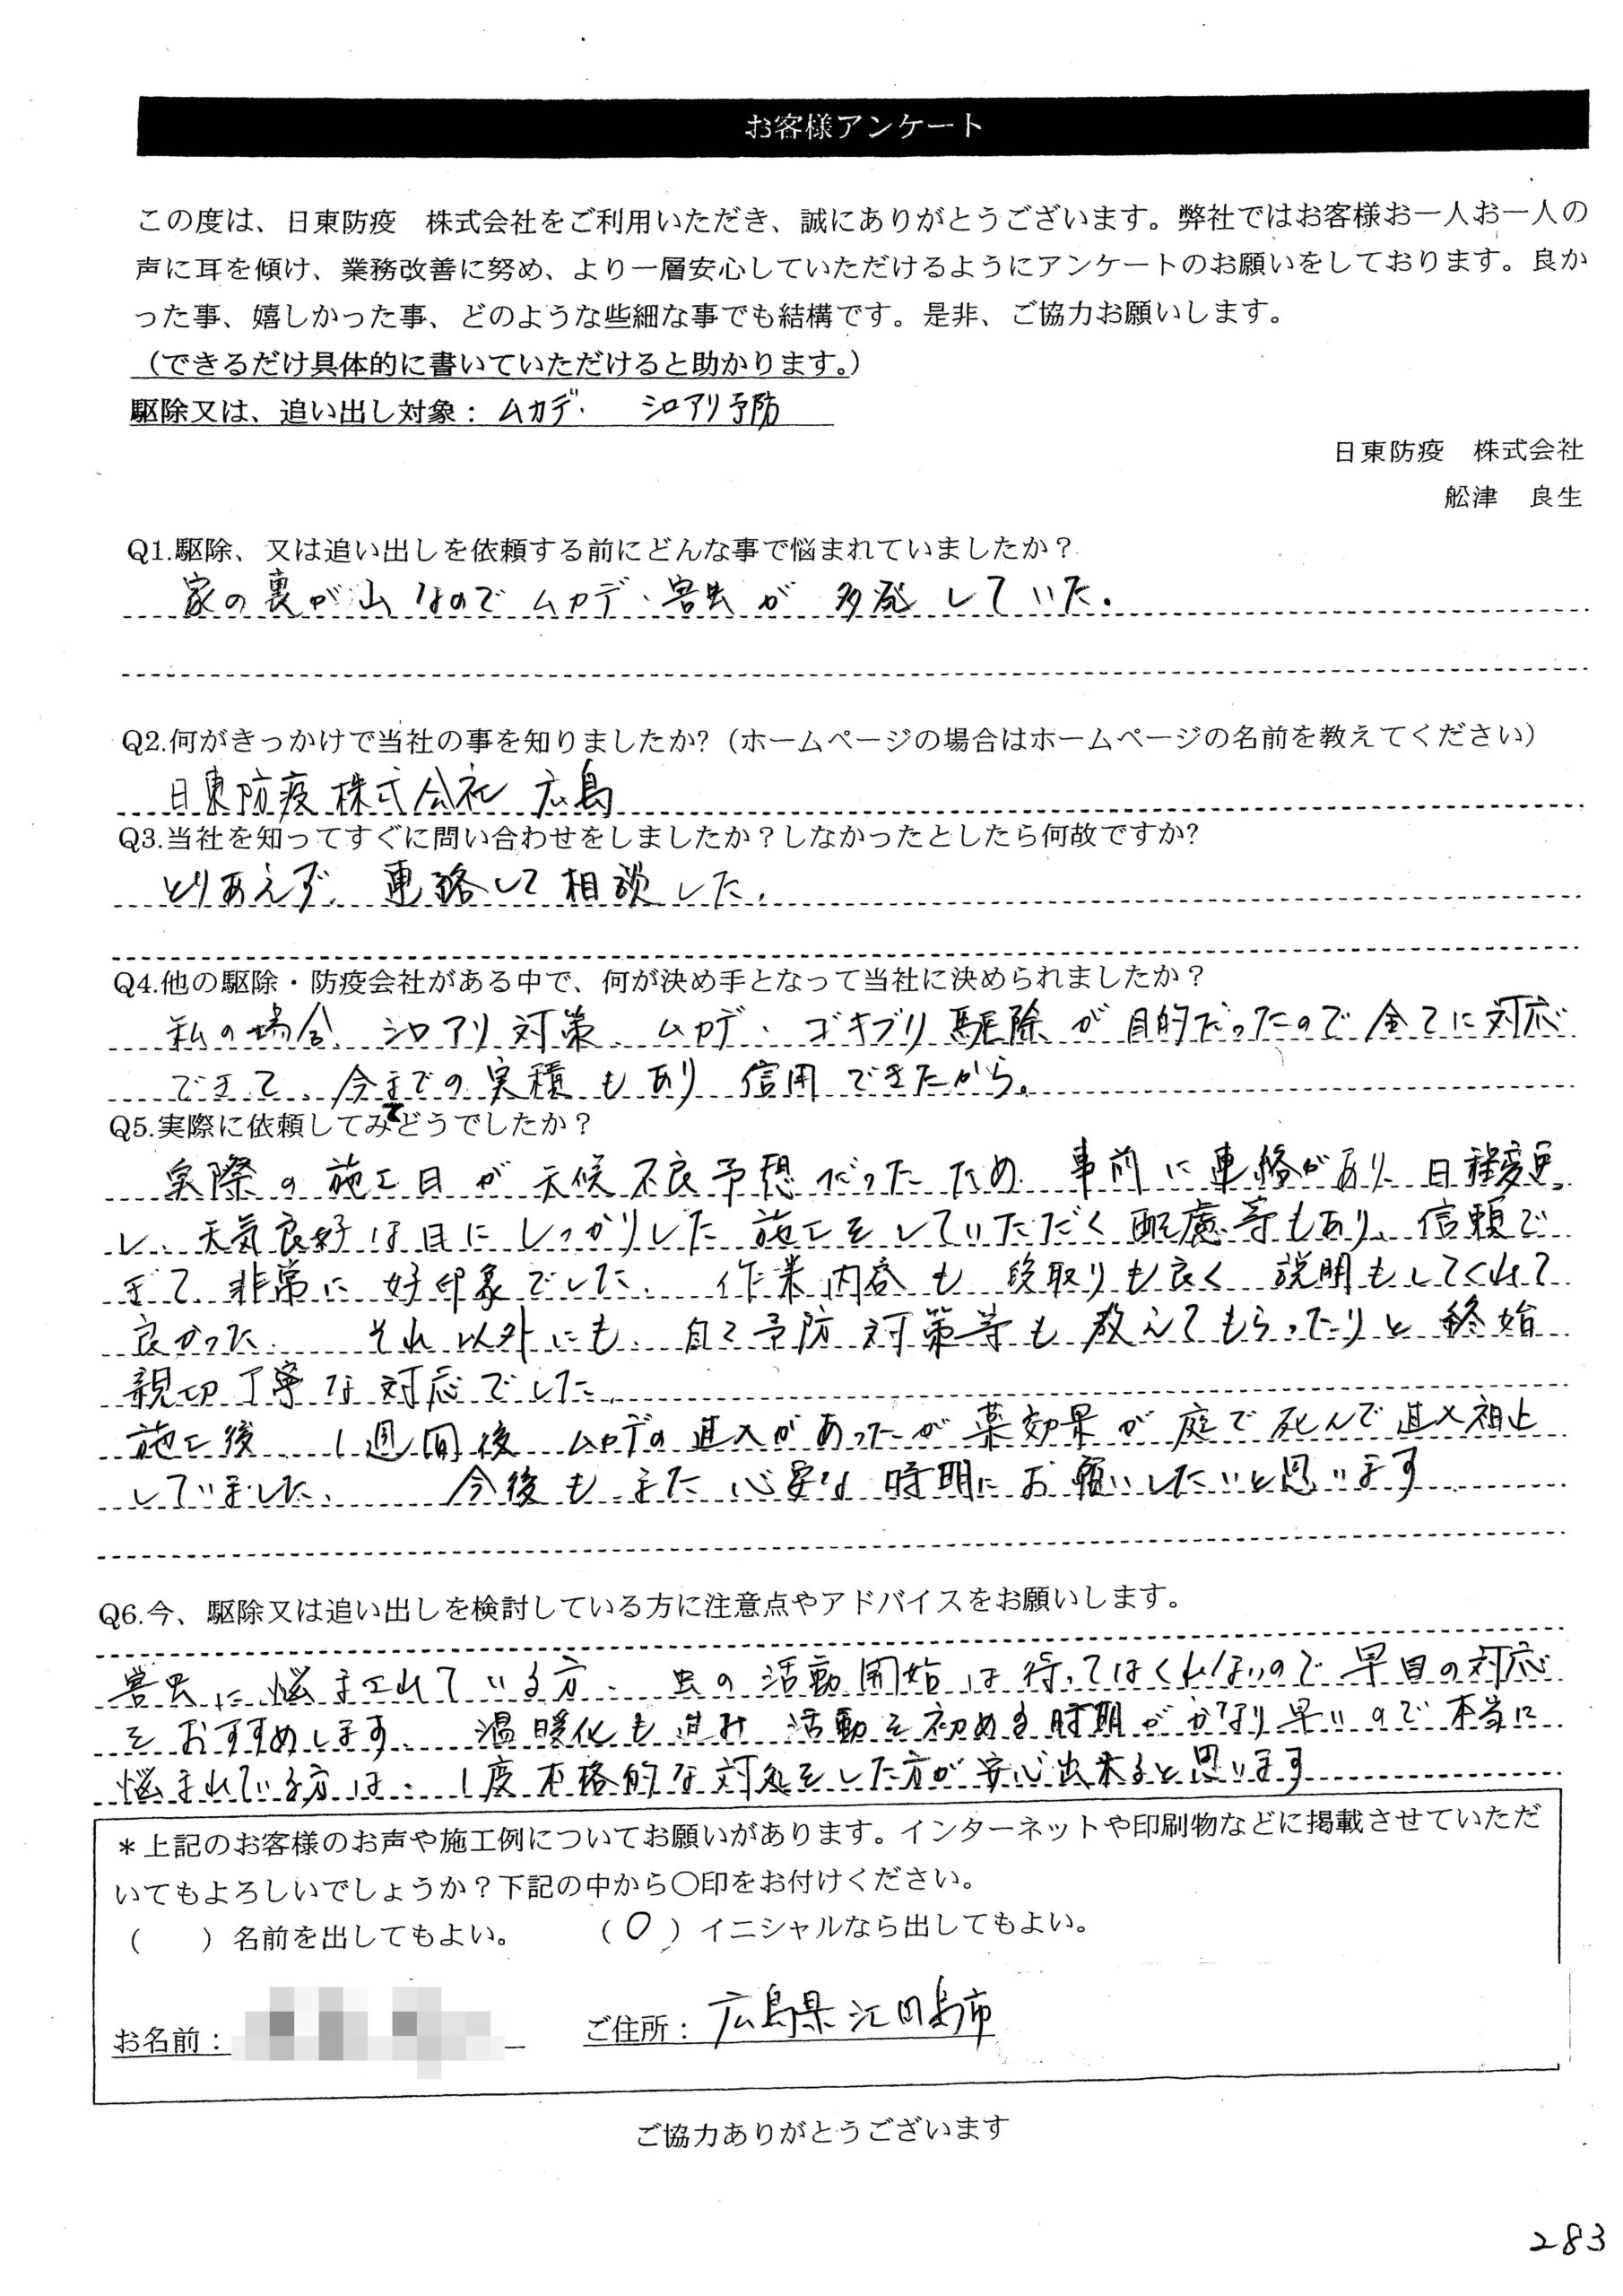 お客様アンケート
この度は、日東防疫　株式会社をご利用いただき、誠にありがとうございます。弊社ではお客様お一人お一人の
声に耳を傾け、業務改善に努め、より一層安心していただけるようにアンケートのお願いをしております。良か
った事、嬉しかった事、どのような些細な事でも結構です。是非、ご協力お願いします。
（できるだけ具体的に書いていただけると助かります。）
駆除又は、追い出し対象：ムカデ・　シロアリ予防
日東防疫　株式会社
舩津　良生
Q1.駆除、又は追い出しを依頼する前にどんな事で悩まれていましたか？
家の裏が山なのでムカデ・害虫が多発していた。
Q2.何がきっかけで当社の事を知りましたか?（ホームページの場合はホームページの名前を教えてください）
日東防疫株式会社 広島
Q3.当社を知ってすぐに問い合わせをしましたか？しなかったとしたら何故ですか?
とりあえず、連絡して相談した。
Q4.他の駆除・防疫会社がある中で、何が決め手となって当社に決められましたか？
私の場合、シロアリ対策、ムカデ・ゴキブリ駆除が目的だったので全てに対応
できて、今までの実積もあり信用できたから。
Q5.実際に依頼してみてどうでしたか？
実際の施工日が天候不良予想だったため、事前に連絡があり、日程変更
し、天気良好な日にしっかりした施工をしていただく配慮等もあり、信頼で
きて非常に好印象でした。作業内容も段取りも良く説明もしてくれて
良かった。それ以外にも、自己予防対策等も教えてもらったりと終始
親切丁寧な対応でした。
施工後、1週間後ムカデの進入があったが薬効果が庭で死んで進入阻止
していました。今後もまた必要な時期にお願いしたいと思います
Q6.今、駆除又は追い出しを検討している方に注意点やアドバイスをお願いします。
害虫に悩まされている方、虫の活動開始は待ってはくれないので早目の対応
をおすすめします。温暖化も進み活動を初める時期がかなり早いので本当に
悩まれている方は、1度本格的な対処をした方が安心出来ると思います
＊上記のお客様のお声や施工例についてお願いがあります。インターネットや印刷物などに掲載させていただ
いてもよろしいでしょうか？下記の中から〇印をお付けください。
（　　）名前を出してもよい。　　（〇）イニシャルなら出してもよい。
お名前：　　ご住所：広島県江田島市
ご協力ありがとうございます
283